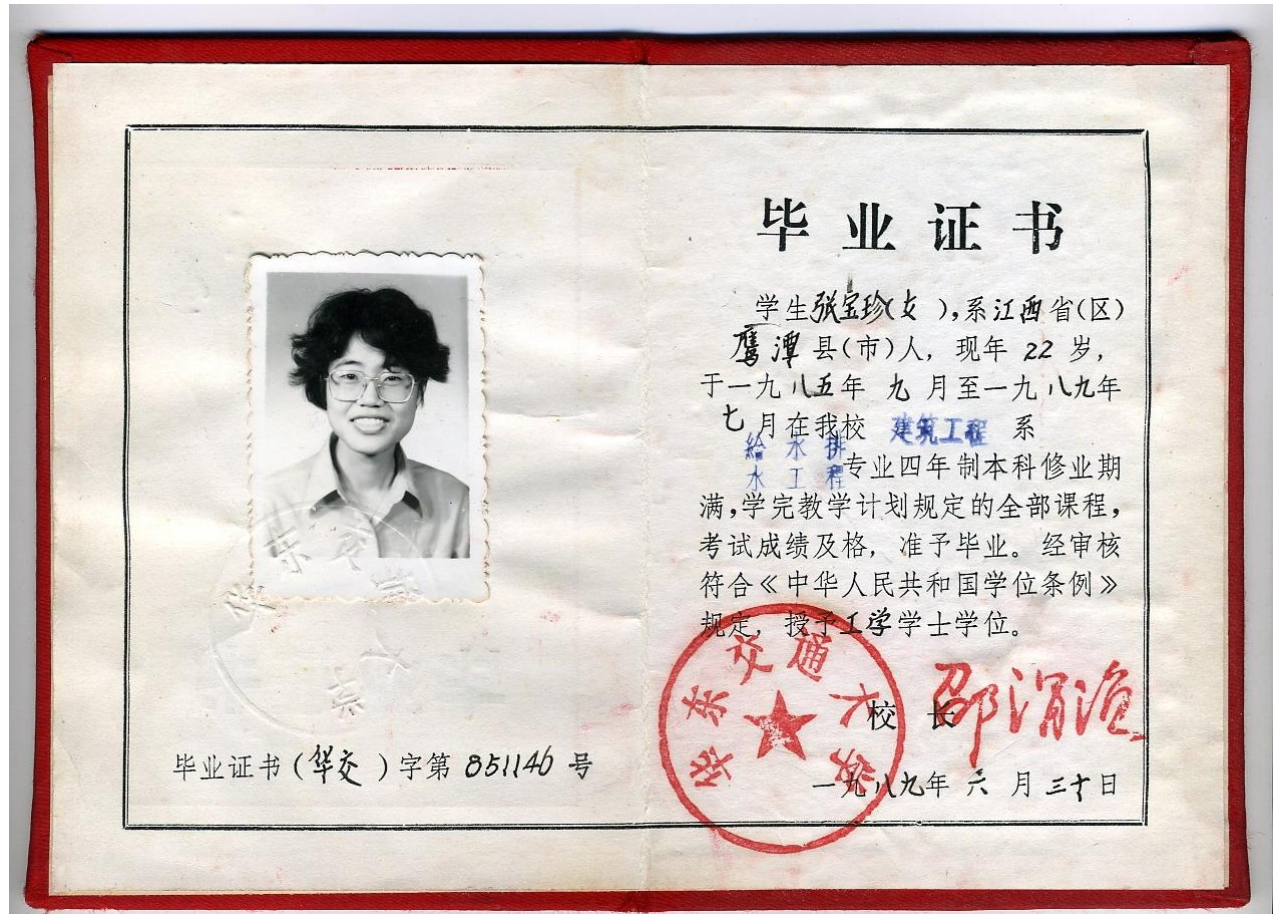 毕业证书
学生张宝珍(女 ),系江西省(区)
鹰潭县(市)人,现年 22 岁,
于一九八五年 九 月至一九八九年
七月在我校 建筑工程 系
給水排
水工程专业四年制本科修业期
满,学完教学计划规定的全部课程,
考试成绩及格,准予毕业。经审核
符合《中华人民共和国学位条例》
规定,授予工学学士学位。
校 长 邵涓渔
华东交通大学
一九八九年 六 月 三十日
毕业证书(华交 )字第 851146 号
华东交通大学